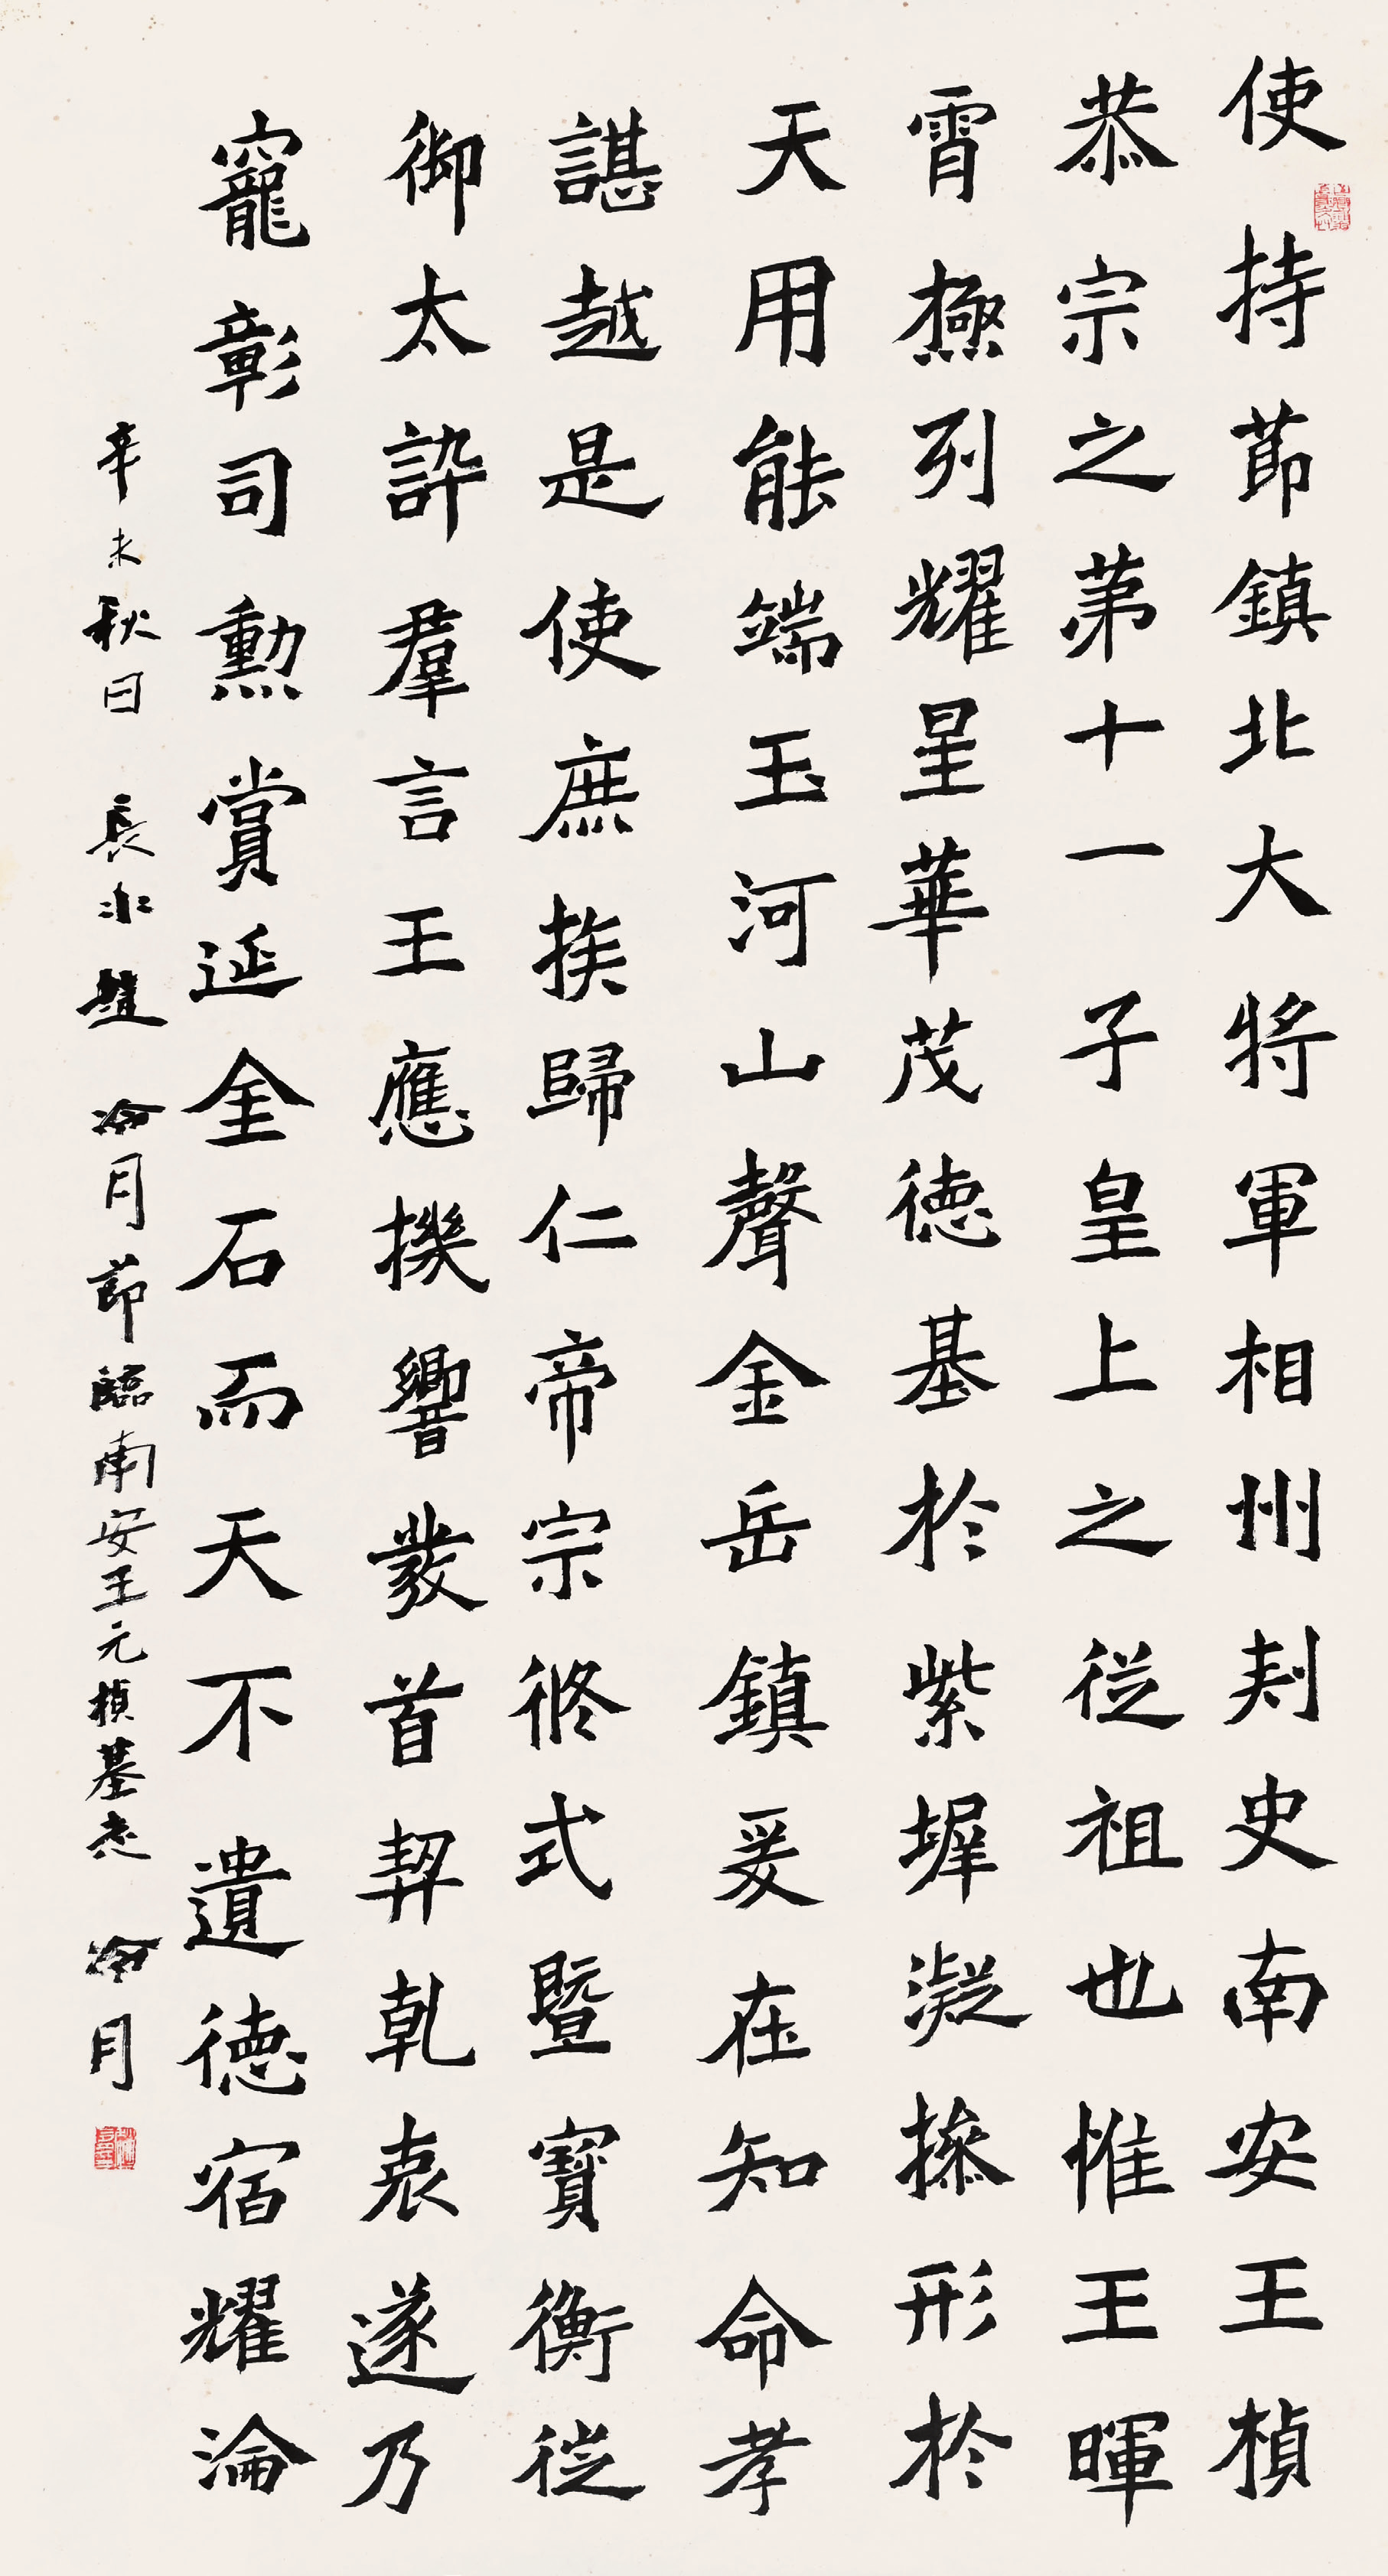 使持節鎮北大將軍相州刾史南安王楨
恭宗之苐十一子皇上之從祖也惟王暉
霄極列耀星華茂德基於紫墀凝操形於
天用能端玉河山聲金岳鎮爰在知命孝
諶越是使庶族歸仁帝宗攸式暨寶衡徙
御太訏羣言王應機響發首契乾衷遂乃
寵彰司勳賞延金石而天不遺德宿耀淪
辛未秋日 長水趙冷月節臨南安王元楨墓志 冷月